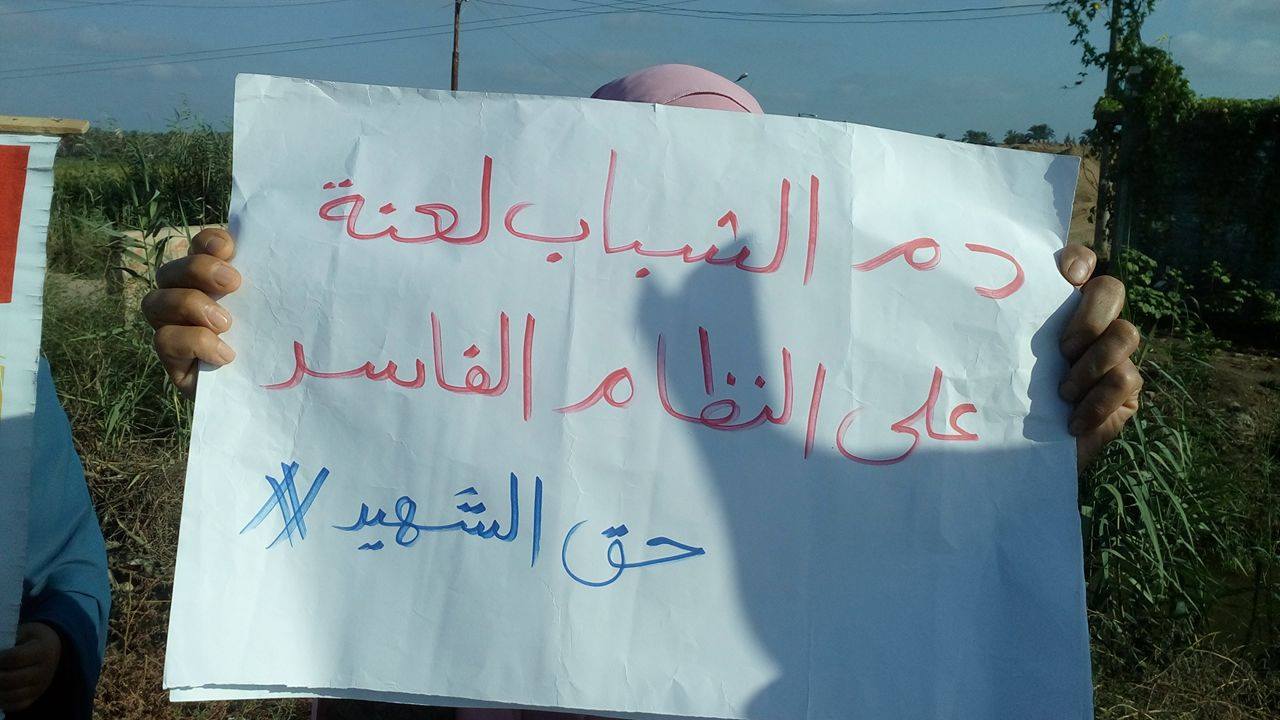 دم الشباب لعنة
على النظام الفاسد
حق الشهيد #